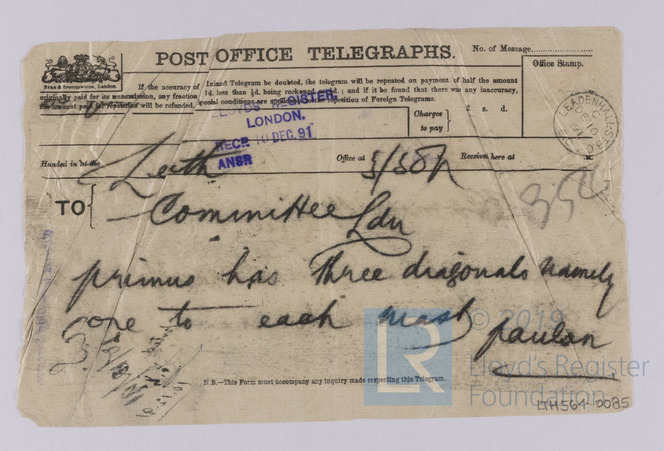 POST OFFICE TELEGRAPHS.
No. of Message
If the accuracy of an Inland Telegram be doubted, the telegram will be repeated on payment of half the amount
originally paid for its transmission, any fraction of 1d. less than ½d. being reckoned as ½d.; and if it be found that there was any inaccuracy,
the amount paid for repetition will be refunded. Special conditions are applicable to the repetition of Foreign Telegrams.
Office Stamp.
LLOYD'S REGISTER,
LONDON.
RECD 10 DEC. 91
ANSR
Charges to pay
s. d.
LEADENHALL ST
Handed in at the
Leith
Office at
Received here at
TO
Committee Ldn
primus has three diagonals namely
one to each mast
paulson
N.B.—This Form must accompany any inquiry made respecting this Telegram.
LR
© 2019
Lloyd's Register
Foundation
LTH564-0085